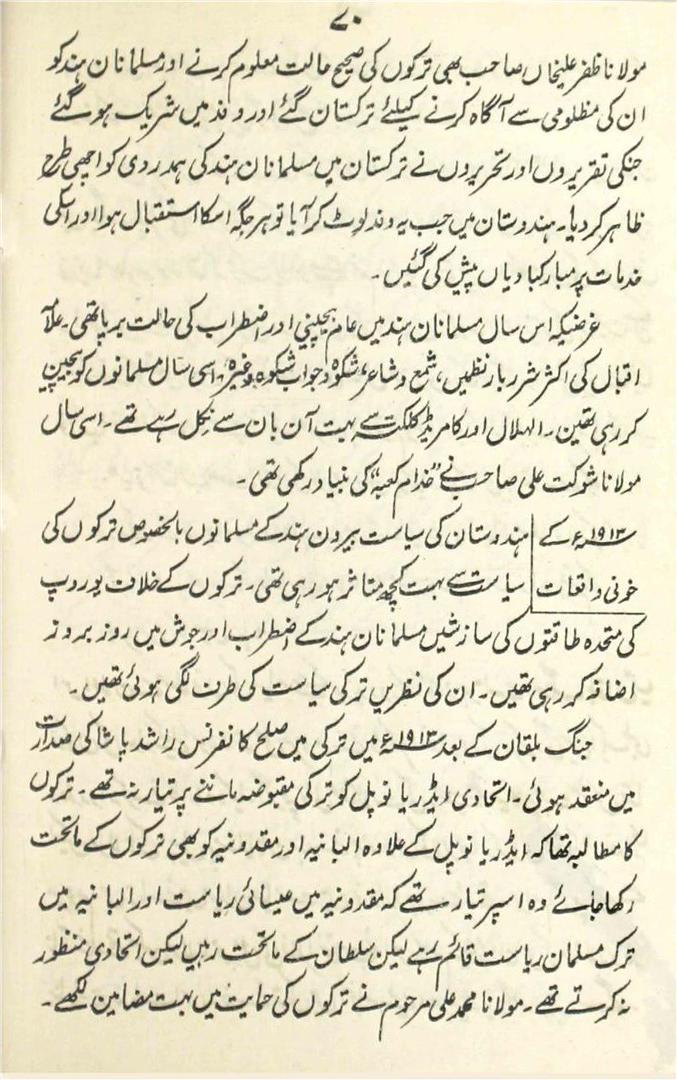 ۷۰
مولانا ظفر علیخاں صاحب بھی ترکوں کی صحیح حالت معلوم کرنے اور مسلمانان ہند کو
ان کی مظلومی سے آگاہ کرنے کیلئے ترکستان گئے اور وفد میں شریک ہو گئے
جنکی تقریروں اور تحریروں نے ترکستان میں مسلمانان ہند کی ہمدردی کو اچھی طرح
ظاہر کر دیا۔ ہندوستان میں جب یہ وفد لوٹ کر آیا تو ہر جگہ اسکا استقبال ہوا اور اسکی
خدمات پر مبارکبادیاں پیش کی گئیں۔
غرضیکہ اس سال مسلمانان ہند میں عام بیچینی اور اضطراب کی حالت برپا تھی۔ علامہ
اقبال کی اکثر شرر بار نظمیں، شمع و شاعر، شکوہ و جواب شکوہ وغیرہ، اسی سال مسلمانوں کو بیچین
کر رہی تھین۔ الہلال اور کامریڈ کلکتہ سے بہت آن بان سے نکل رہے تھے۔ اسی سال
مولانا شوکت علی صاحب نے "خدام کعبہ" کی بنیاد رکھی تھی۔
۱۹۱۳ء کے ہندوستان کی سیاست بیرون ہند کے مسلمانوں بالخصوص ترکوں کی
خونی واقعات سیاست سے بہت کچھ متاثر ہو رہی تھی۔ ترکوں کے خلاف یوروپ
کی متحدہ طاقتوں کی سازشیں مسلمانان ہند کے اضطراب اور جوش میں روز بروز
اضافہ کر رہی تھیں۔ ان کی نظریں ترکی سیاست کی طرف لگی ہوئی تھیں۔
جنگ بلقان کے بعد ۱۹۱۳ء میں ترکی میں صلح کانفرنس راشد پاشا کی صدارت
میں منعقد ہوئی۔ اتحادی ایڈریا نوپل کو ترکی مقبوضہ ماننے پر تیار نہ تھے۔ ترکوں
کا مطالبہ تھا کہ ایڈریا نوپل کے علاوہ البانیہ اور مقدونیہ کو بھی ترکوں کے ماتحت
رکھا جائے وہ اسپر تیار تھے کہ مقدونیہ میں عیسائی ریاست اور البانیہ میں
ترک مسلمان ریاست قائم رہے لیکن سلطان کے ماتحت رہیں لیکن اتحادی منظور
نہ کرتے تھے۔ مولانا محمد علی مرحوم نے ترکوں کی حمایت میں بہت مضامین لکھے۔